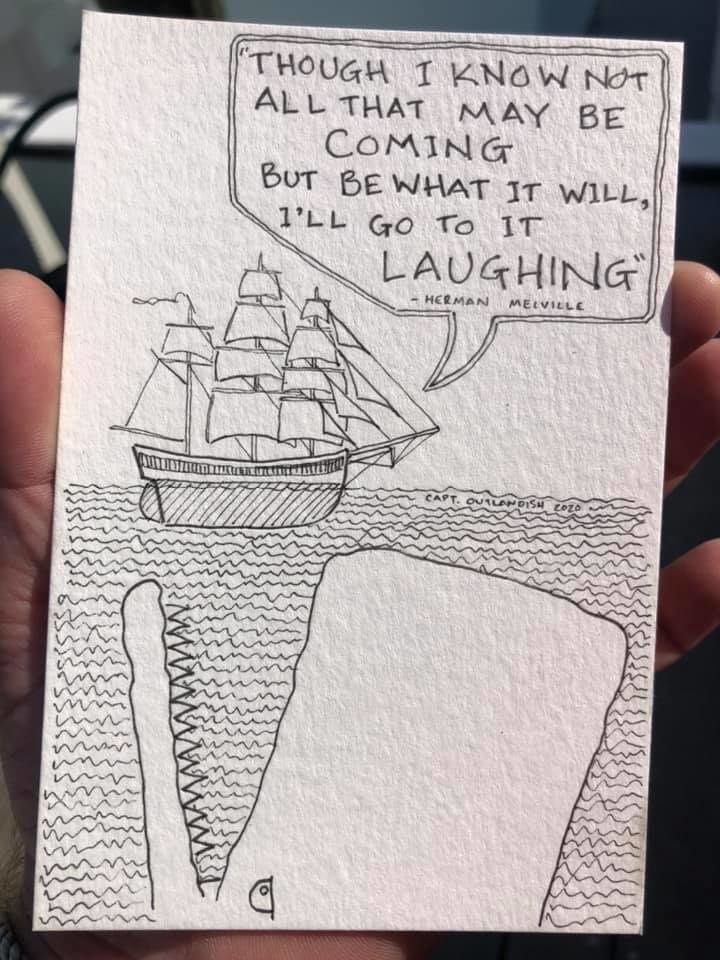 "THOUGH I KNOW NOT
ALL THAT MAY BE
COMING
BUT BE WHAT IT WILL,
I'LL GO TO IT
LAUGHING"
- HERMAN MELVILLE
CAPT. OUTLANDISH 2020